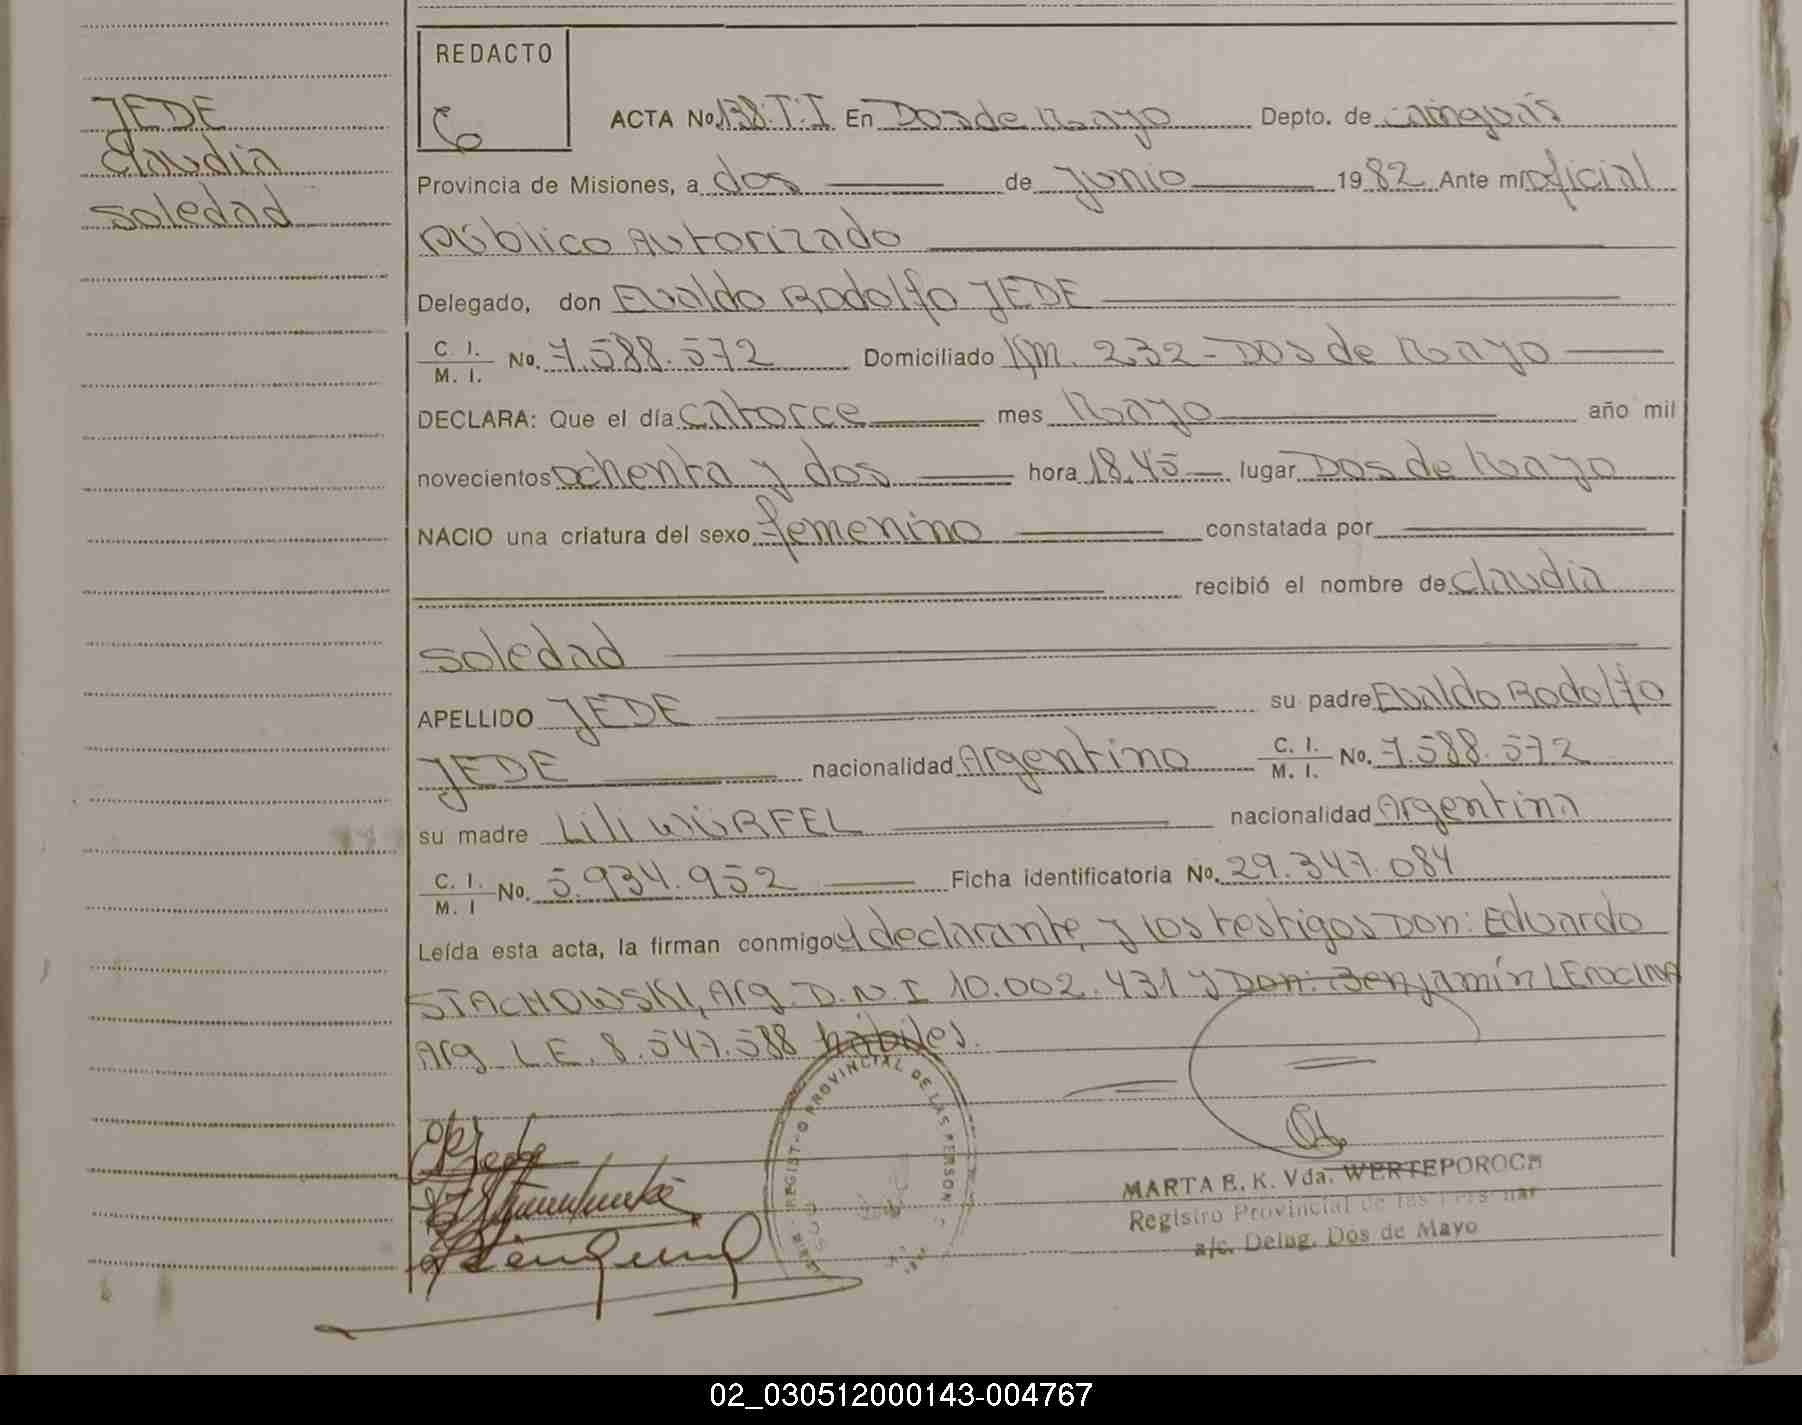 JEDE
Claudia
Soledad
REDACTO
ACTA No. 138.T.I En Dos de Mayo Depto. de Cainguás
Provincia de Misiones, a dos de Junio 1982 Ante mí oficial
Público Autorizado
Delegado, don Evaldo Rodolfo JEDE
C. I. M. I. No. 7.588.572 Domiciliado Km. 232-Dos de Mayo
DECLARA: Que el día catorce mes Mayo año mil
novecientos ochenta y dos hora 18,45 lugar Dos de Mayo
NACIO una criatura del sexo femenino constatada por
recibió el nombre de Claudia
Soledad
APELLIDO JEDE su padre Evaldo Rodolfo
JEDE nacionalidad Argentino C. I. M. I. No. 7.588.572
su madre Lili WÜRFEL nacionalidad Argentina
C. I. M. I No. 5.934.952 Ficha identificatoria No. 29.347.084
Leída esta acta, la firman conmigo el declarante, y los testigos Don: Eduardo
STACHOWSKI, Arg. D.N.I 10.002.431 y Don: Benjamín
Arg. L.E. 8.547.588 hábiles.
REGISTRO PROVINCIAL DE LAS PERSON
MARTA E. K. Vda. WERTEPOROCH
Registro Provincial de las Personas
a/c. Deleg. Dos de Mayo
02_030512000143-004767